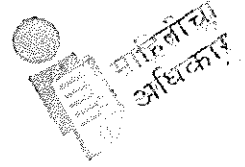 माहितीचा
अधिकार